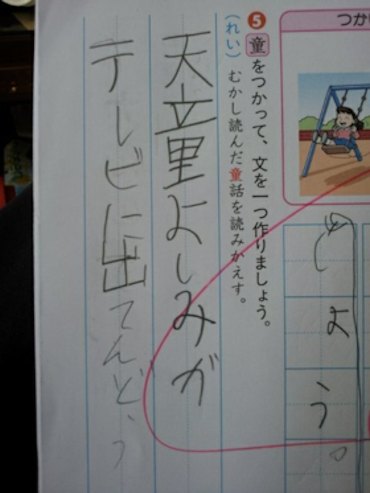 つか
しょう。
❺童をつかって、文を一つ作りましょう。
(れい)むかし読んだ童話を読みかえす。
天童よしみが
テレビに出てんどう